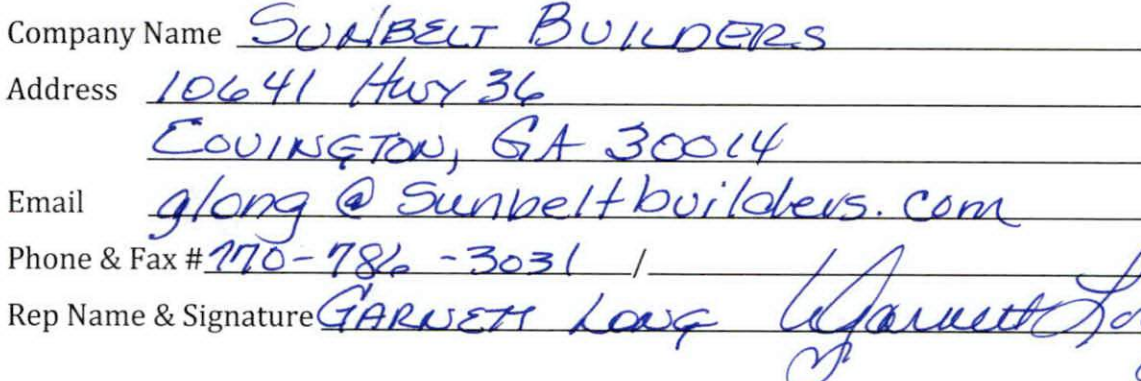 Company Name SUNBELT BUILDERS
Address 10641 HWY 36
COVINGTON, GA 30014
Email glong@sunbeltbuilders.com
Phone & Fax # 770-786-3031 /
Rep Name & Signature GARNETT LONG Garnett Lo